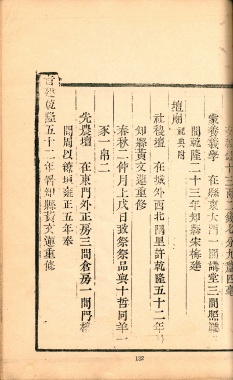 間乾隆二十三年知縣宋梅建
壇廟祀典附
社稷壇 在城外西北隅里許乾隆五十二年
知縣黃文蓮重修
春秋二仲月上戊日致祭祭品與十哲同羊一
豕一帛二
先農壇 在東門外正房三間倉房一間門樓
間周以繚垣雍正五年奉
旨建乾隆五十二年署知縣黃文蓮重修
132